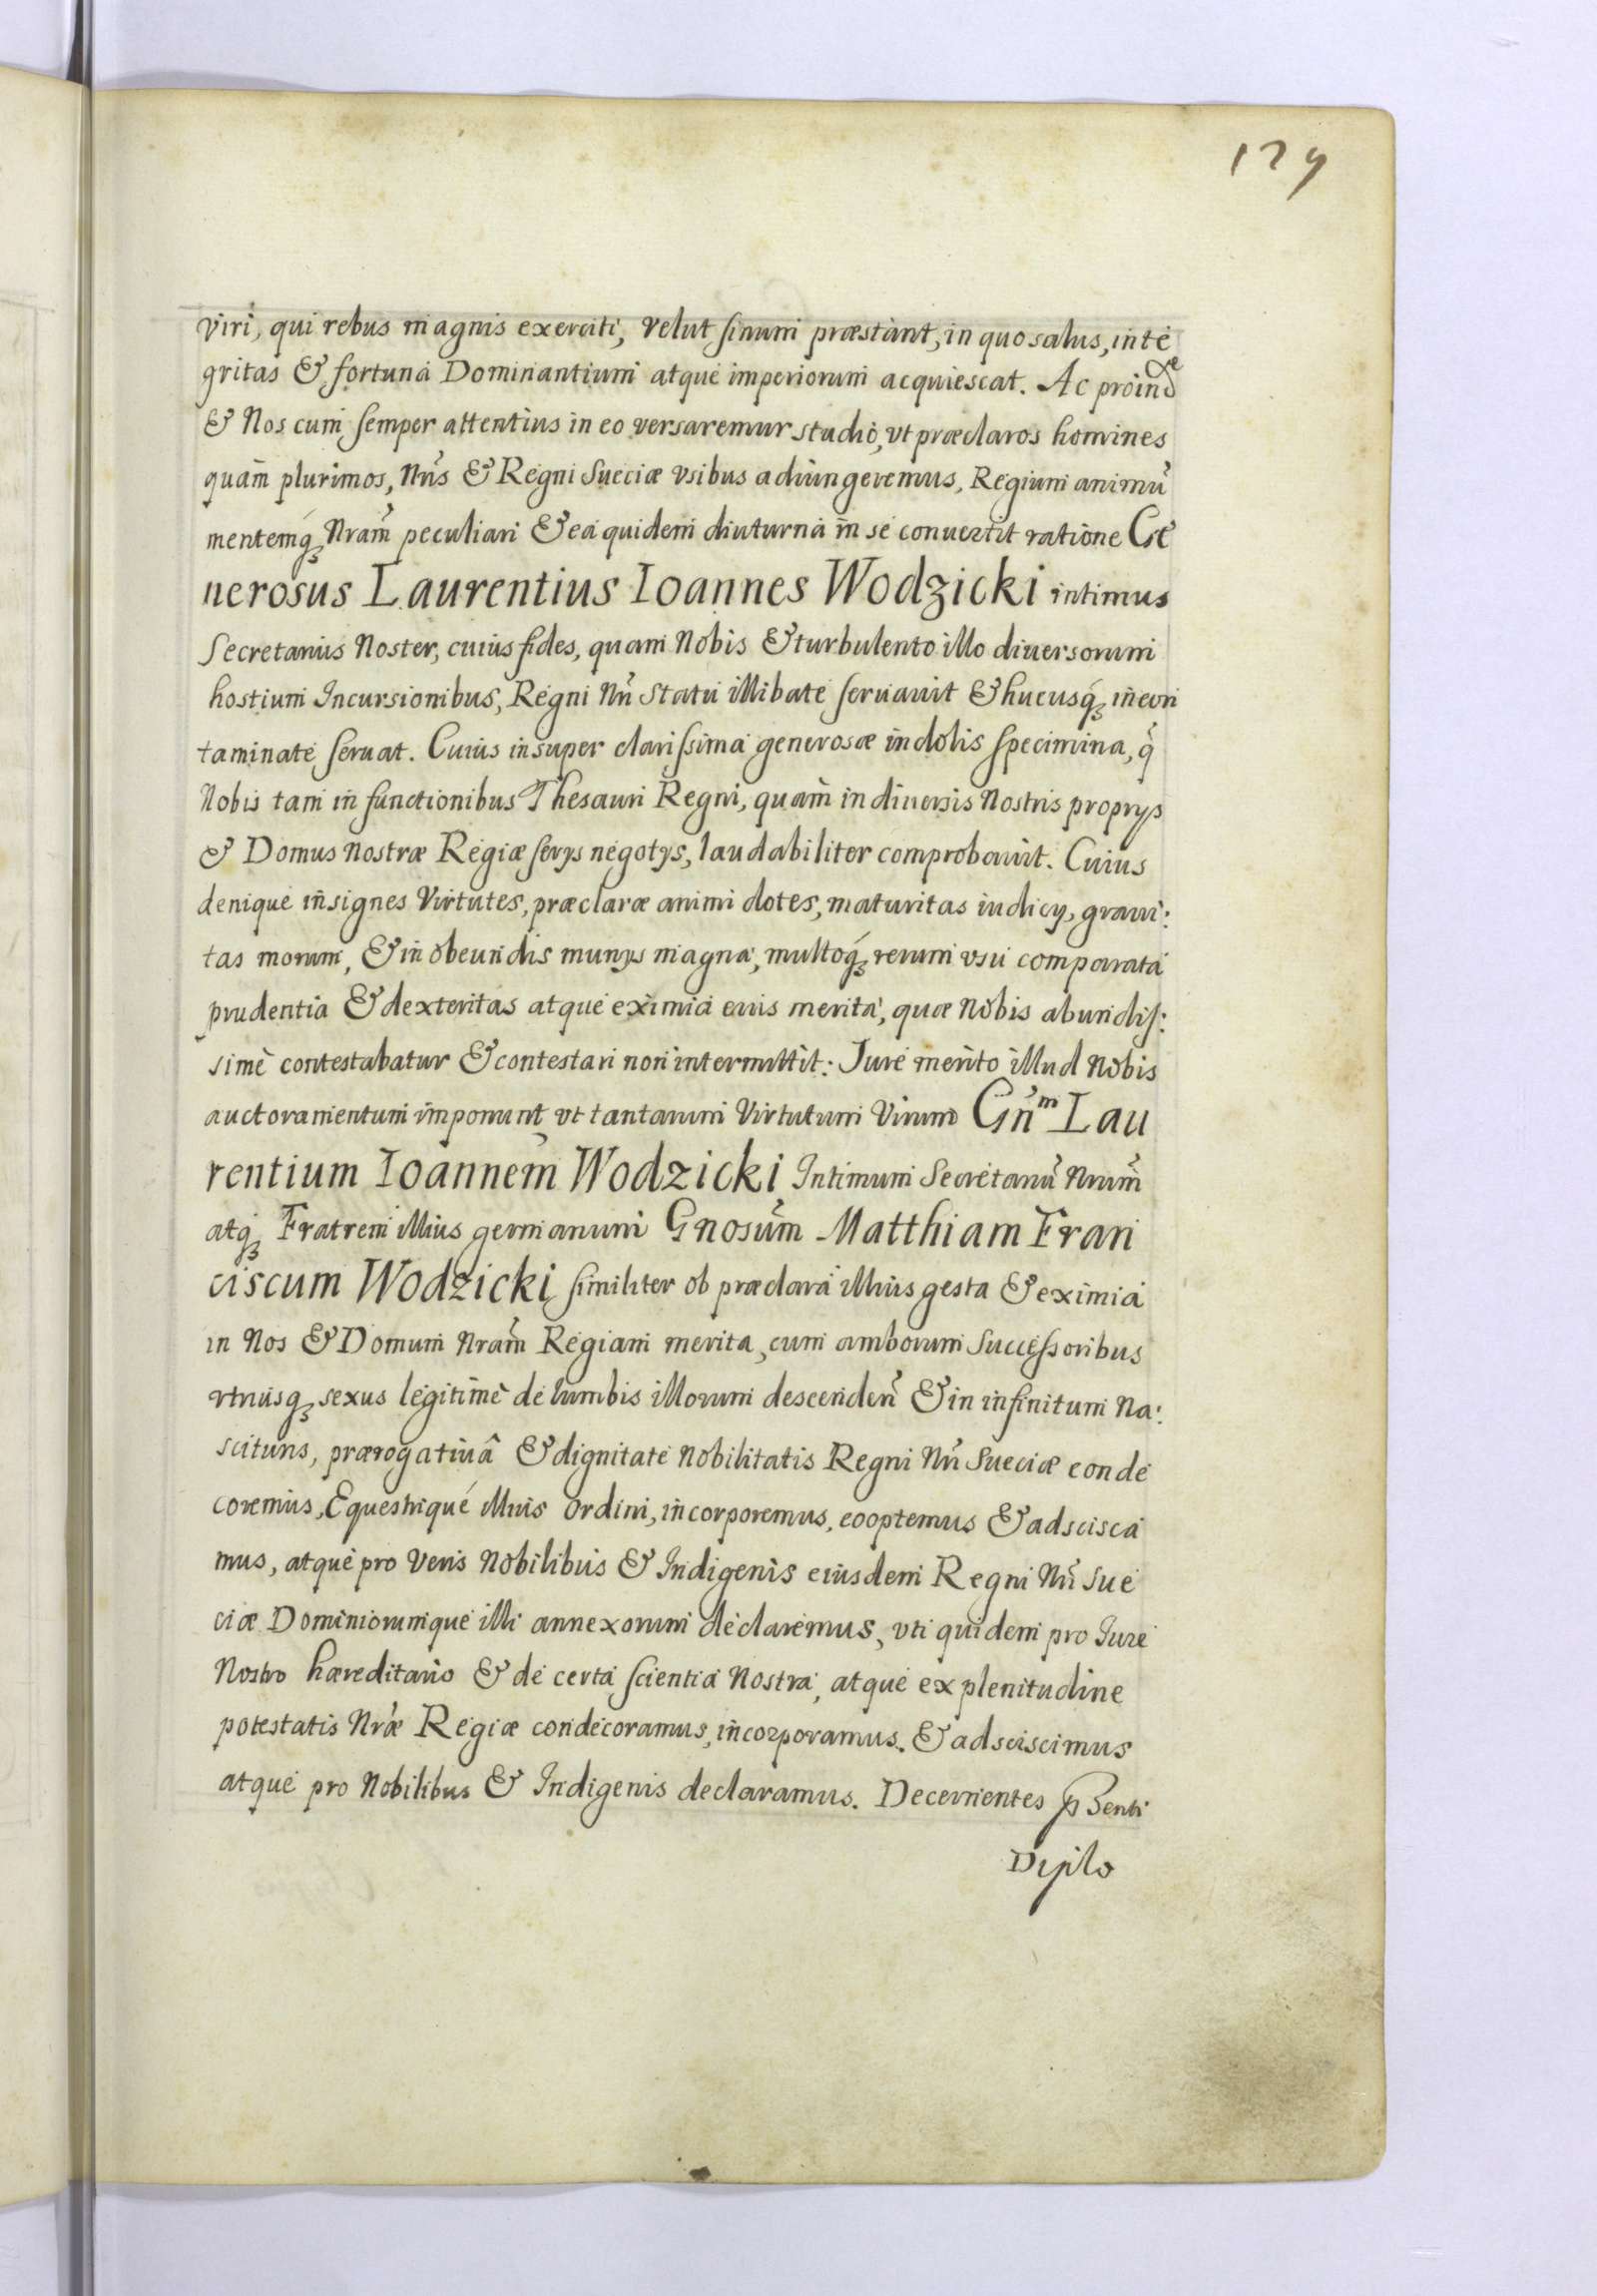 129
viri, qui rebus magnis exerciti, velut sinum præstant, in quo salus, inte
gritas & fortuna Dominantium atque imperiorum acquiescat. Ac proinde
& Nos cum semper attentius in eo versaremur studio, vt præclaros homines
quam plurimos, Nr̃is & Regni Sueciæ vsibus adiungeremus, Regium animũ
mentemq́ꝫ Nrãm peculiari & ea quidem diuturna in se conuertit ratione Ge
nerosus Laurentius Ioannes Wodzicki intimus
Secretarius Noster, cuius fides, quam Nobis & turbulento illo diuersorum
hostium Incursionibus, Regni Nr̃i statu illibate seruauit & hucusq́ꝫ incon
taminate seruat. Cuius insuper clarissima generosæ indolis specimina, q̃
Nobis tam in functionibus Thesauri Regni, quam in diuersis Nostris proprys
& Domus Nostræ Regiæ serys negotys, laudabiliter comprobauit. Cuius
denique insignes Virtutes, præclaræ animi dotes, maturitas iudicy, graui:
tas morum, & in obeundis munys magna, multoq́ꝫ rerum vsu comparata
prudentia & dexteritas atque eximia eius merita, quæ Nobis abundis:
simè contestabatur & contestari non intermittit: Jure merito illud Nobis
auctoramentum imponunt, vt tantarum Virtutum Virum Gñm Lau
rentium Ioannem Wodzicki Intimum Secretariũ Nrũm
atqꝫ Fratrem illius germanum Gnosũm Matthiam Fran
ciscum Wodzicki similiter ob præclara illius gesta & eximia
in Nos & Domum Nrãm Regiam merita, cum amborum Successoribus
vtriusqꝫ sexus legitimè de lumbis illorum descenden̄ & in infinitum Na:
scituris, prærogatiuâ & dignitate Nobilitatis Regni Nr̃i Sueciæ conde
coremus, Equestrique illius Ordini, incorporemus, cooptemus & adscisca
mus, atque pro Veris Nobilibus & Indigenis eiusdem Regni Nr̃i Sue
ciæ Dominiorumque illi annexorum declaremus, vti quidem pro Jure
Nostro hæreditario & de certa scientia Nostra, atque ex plenitudine
potestatis Nr̃æ Regiæ condecoramus, incorporamus, & adsciscimus
atque pro Nobilibus & Indigenis declaramus. Decernentes p̃senti
Diplo